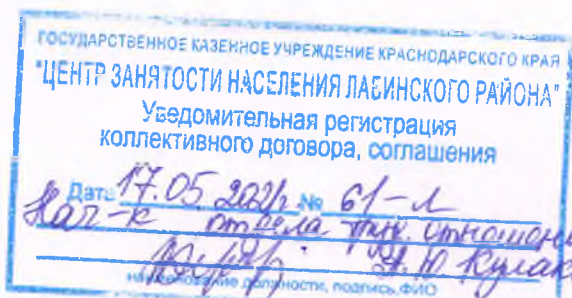 ГОСУДАРСТВЕННОЕ КАЗЕННОЕ УЧРЕЖДЕНИЕ КРАСНОДАРСКОГО КРАЯ
"ЦЕНТР ЗАНЯТОСТИ НАСЕЛЕНИЯ ЛАБИНСКОГО РАЙОНА"
Уведомительная регистрация
коллективного договора, соглашения
Дата 17.05 № 61-л
Нач-к отдела
наименование должности, подпись, ФИО